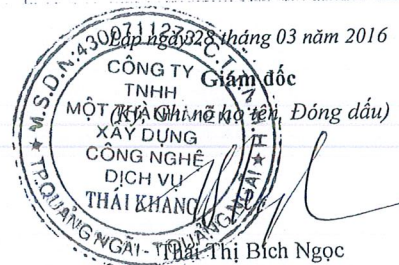 Lập ngày 28 tháng 03 năm 2016
Giám đốc
(Ký, Ghi rõ họ tên, Đóng dấu)
CÔNG TY
TNHH
MỘT THÀNH VIÊN
XÂY DỰNG
CÔNG NGHỆ
DỊCH VỤ
THÁI KHANG
TP.QUẢNG NGÃI - T.QUẢNG NGÃI
Thái Thị Bích Ngọc